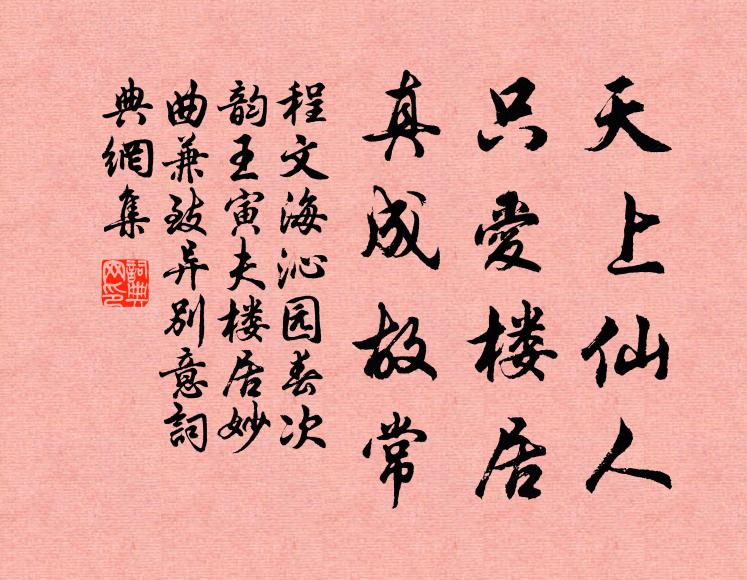 天上仙人
只愛楼居
真成故常
程文海沁园春次
韵王寅夫楼居妙
曲兼致异别意詞
典網集
詞典
网印